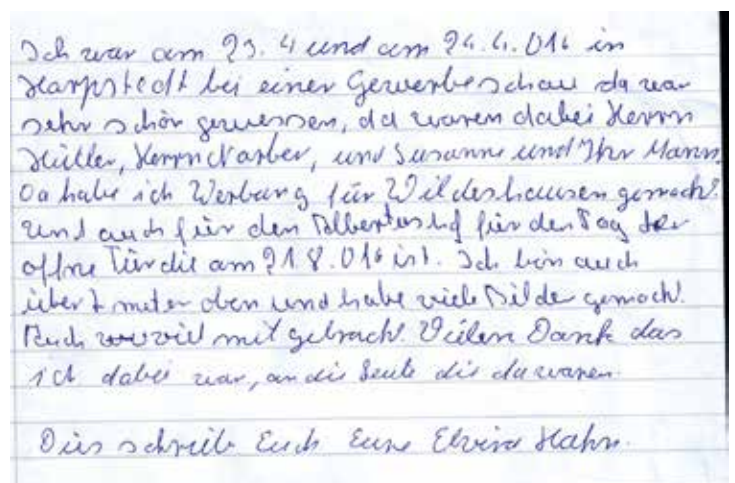 Ich war am 23.4 und am 24.4.016 in
Harpstedt bei einer Gewerbeschau da war
sehr schön gewessen, da waren dabei Herrn
Müller, Herrn und Susanne und Ihr Mann.
Da habe ich Werbung für Wildeshausen gemacht.
Und auch für den Albertushof für den Tag der
offne Tür die am 21.8.016 ist. Ich bin auch
über meter oben und habe viele Bilder gemacht.
Auch wieviel mit gebracht. Vielen Dank das
ich dabei war, an die Leute die da waren.
Dies schreib Euch Eure Elvira Hahn.